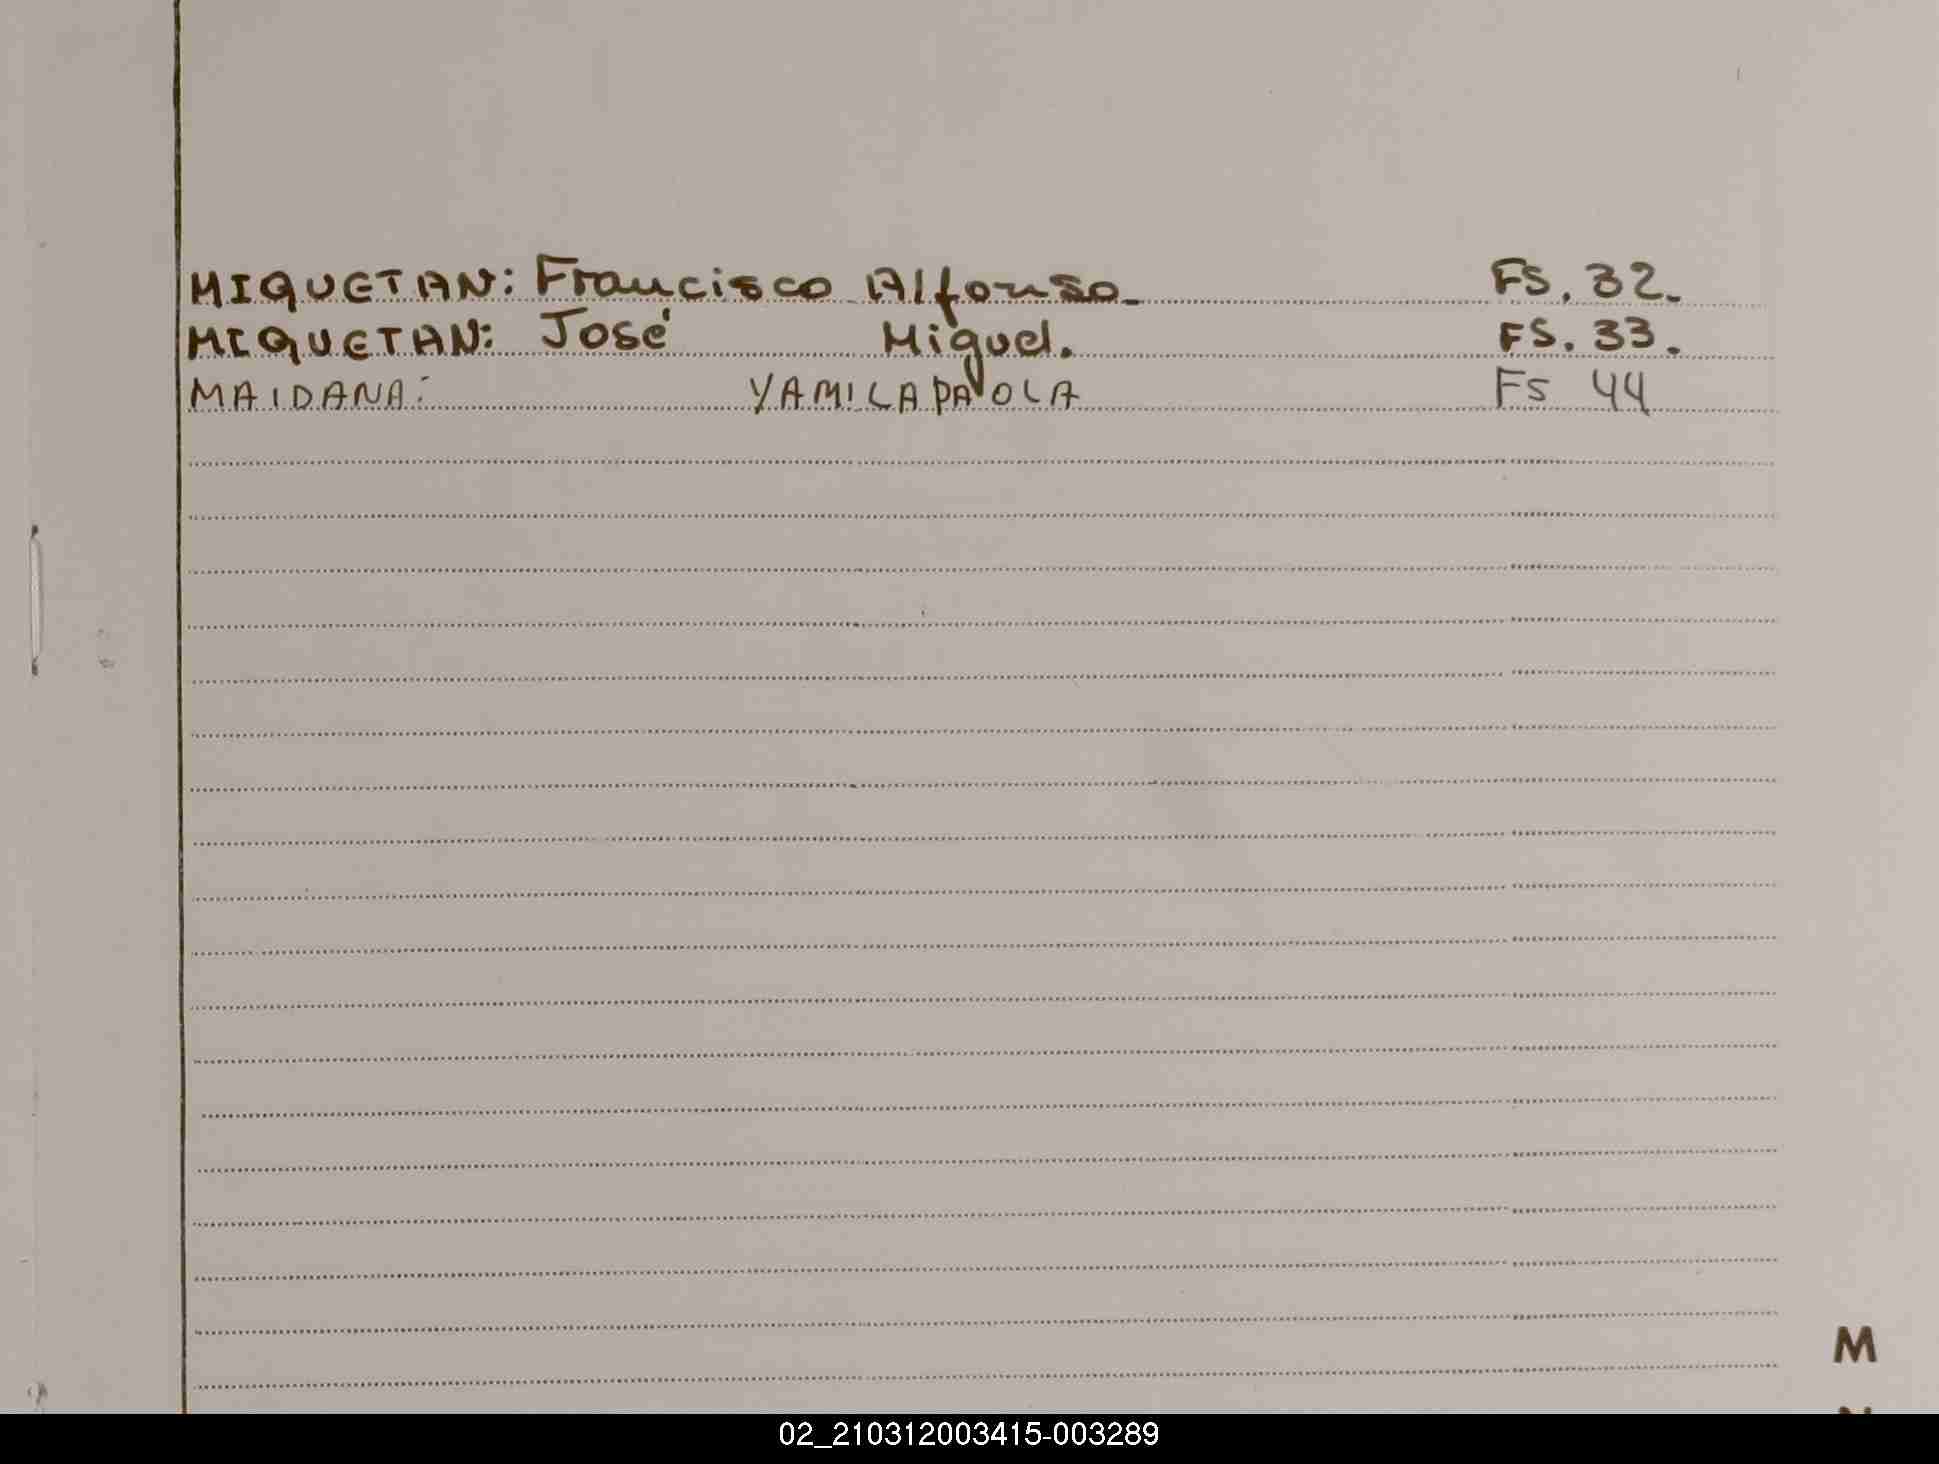 MIQUETAN: Francisco Alfonso. FS. 32.
MIQUETAN: José Miguel. FS. 33.
MAIDANA: YAMILA PAOLA FS 44
M
02_210312003415-003289